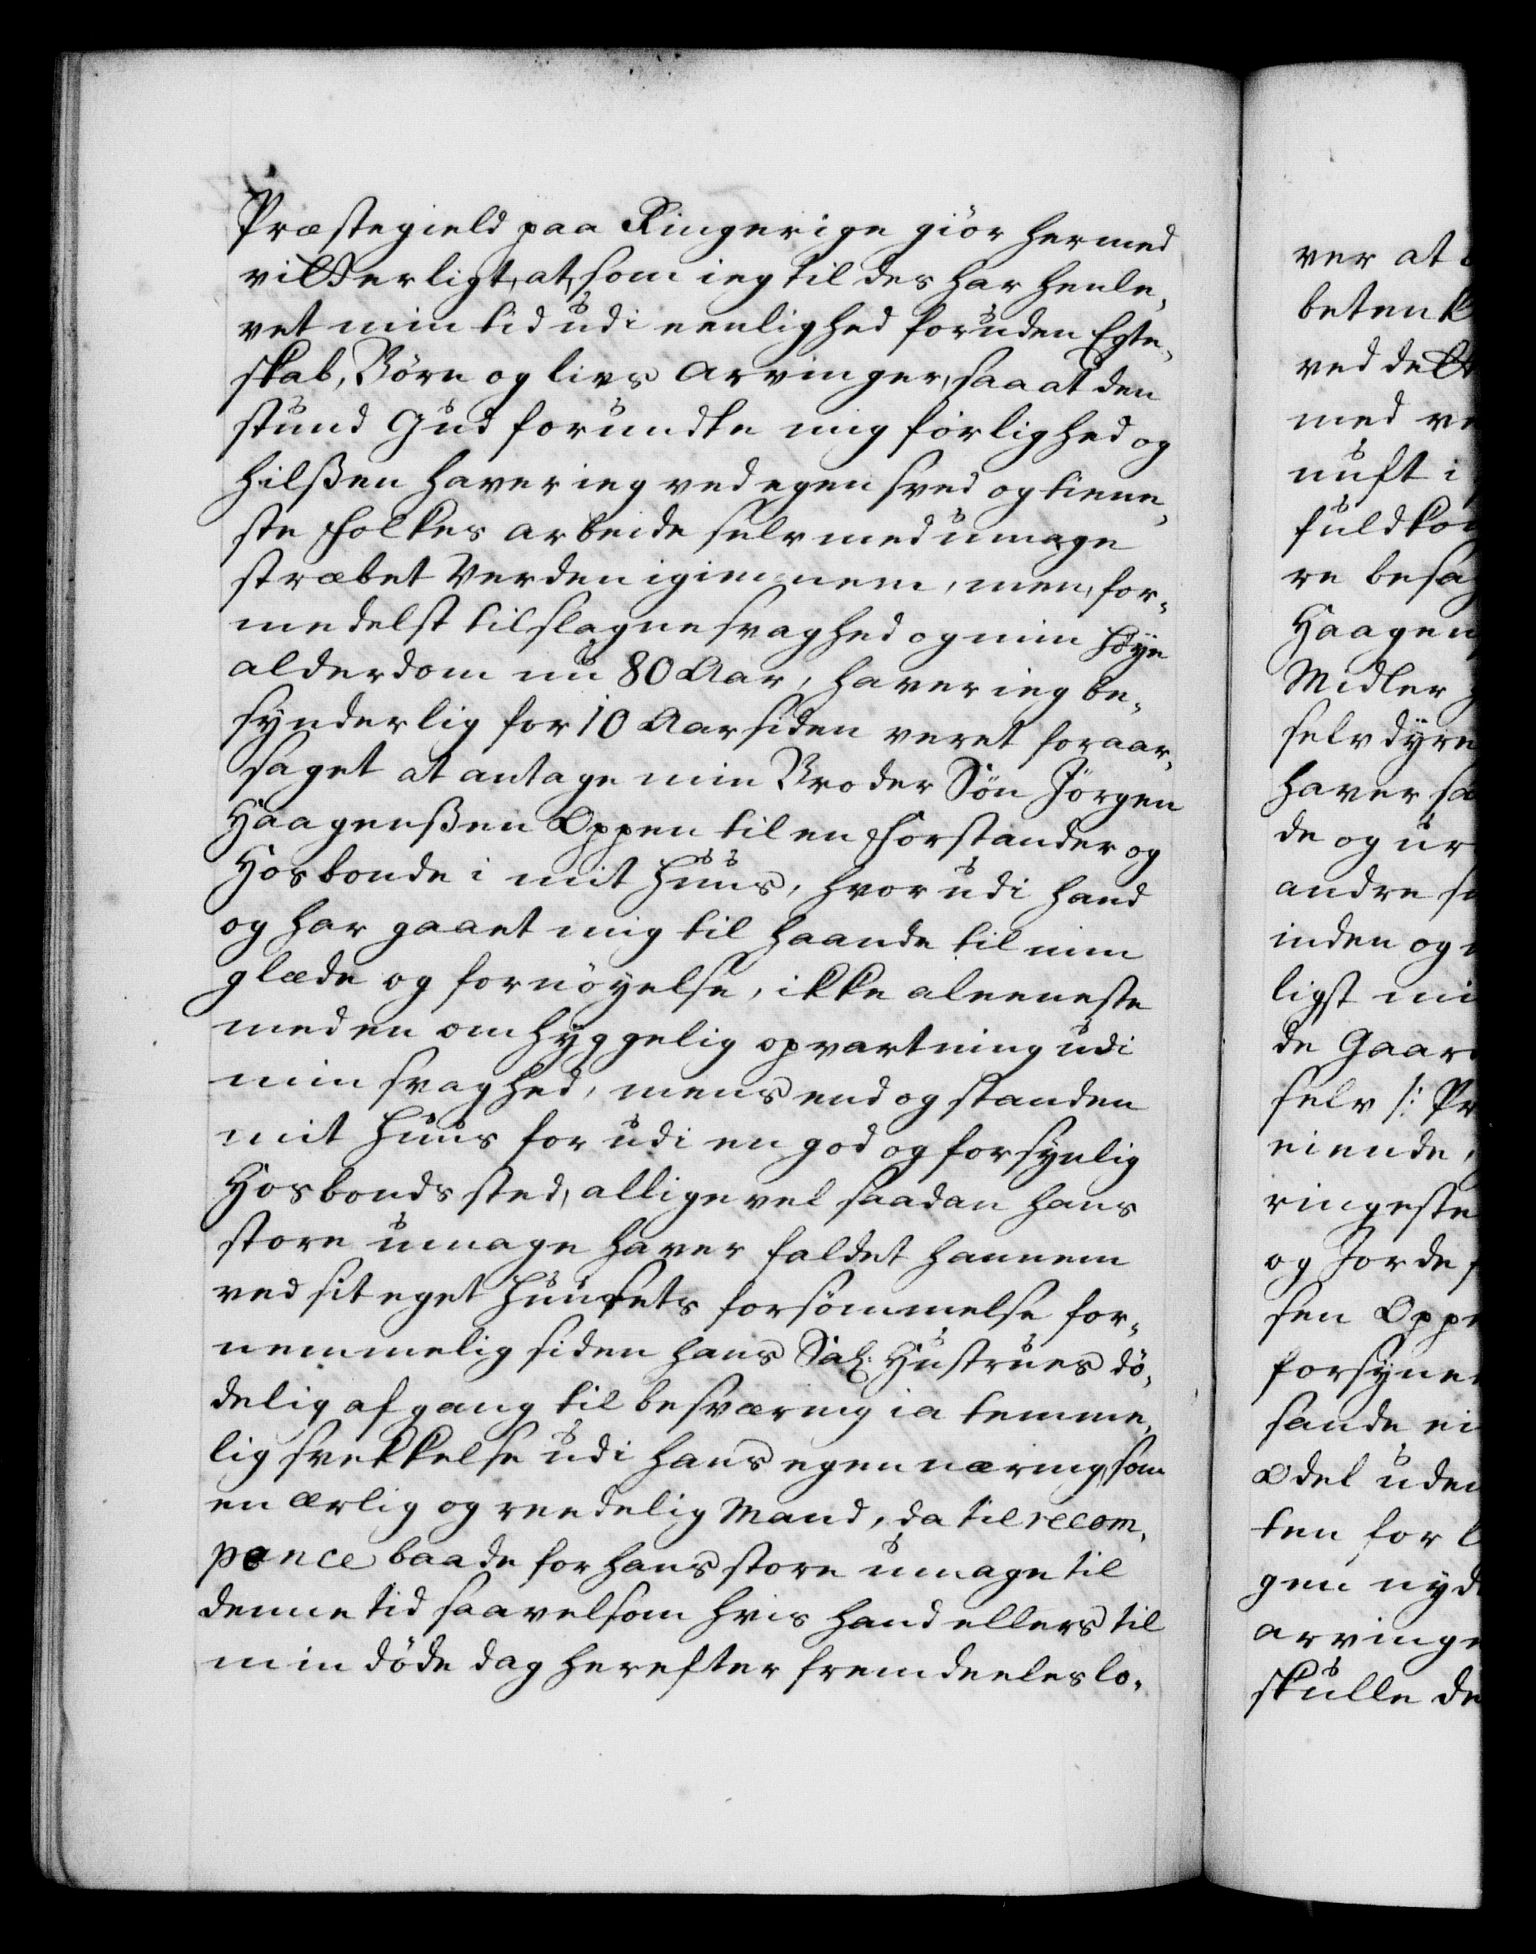 Præstegield paa Ringerige giör hermed
vitterligt, at, som ieg til des har henle,
vet min tid udi eenlighed foruden Egte,
skab, Börn og livs Arvinger, saa at den
stund Gud forundte mig förlighed og
hilßen haver ieg ved egen sved og tiene,
ste folkes arbeide selv med umage
stræbet Verden igiennem, men, for,
medelst tilslagne svaghed og min höye
alderdom nu 80 Aar, haver ieg be,
synderlig for 10 Aar siden veret foraar,
saget at antage min Broder Sön Jörgen
Haagenßen Oppen til en forstander og
Hosbonde i mit Huus, hvorudi hand
og har gaaet mig til haande til min
glæde og fornöyelse, ikke aleeneste
med en omhyggelig opvartning udi
min svaghed, mens end og standen
mit Huus for udi en god og forsynlig
Hosbonds sted, alligevel saadan hans
store umage haver faldet hannem
ved sit eget Huusets forsömmelse for,
nemmelig siden hans Sal: Hustrues dö,
delig afgang til besværing ia temme,
lig svekkelse udi hans egen næring, som
en ærlig og reedelig Mand, da til recom,
pence baade for hans store umage til
denne tid saavelsom hvis hand ellers til
min döde dag herefter fremdeeles lo,
ver at
betenk
ved delt
med
nuft i
fuldkom
re besa
Haagen
Midler
selv dyre
haver sa
de og ur
andre
inden og
ligst mi
de Gaar
selv /: Pr
eiende
ringeste
og Jorde
sen Oppe
forsyne
sande ei
Odel uden
ten for
gen nyd
arvinge
skulle de